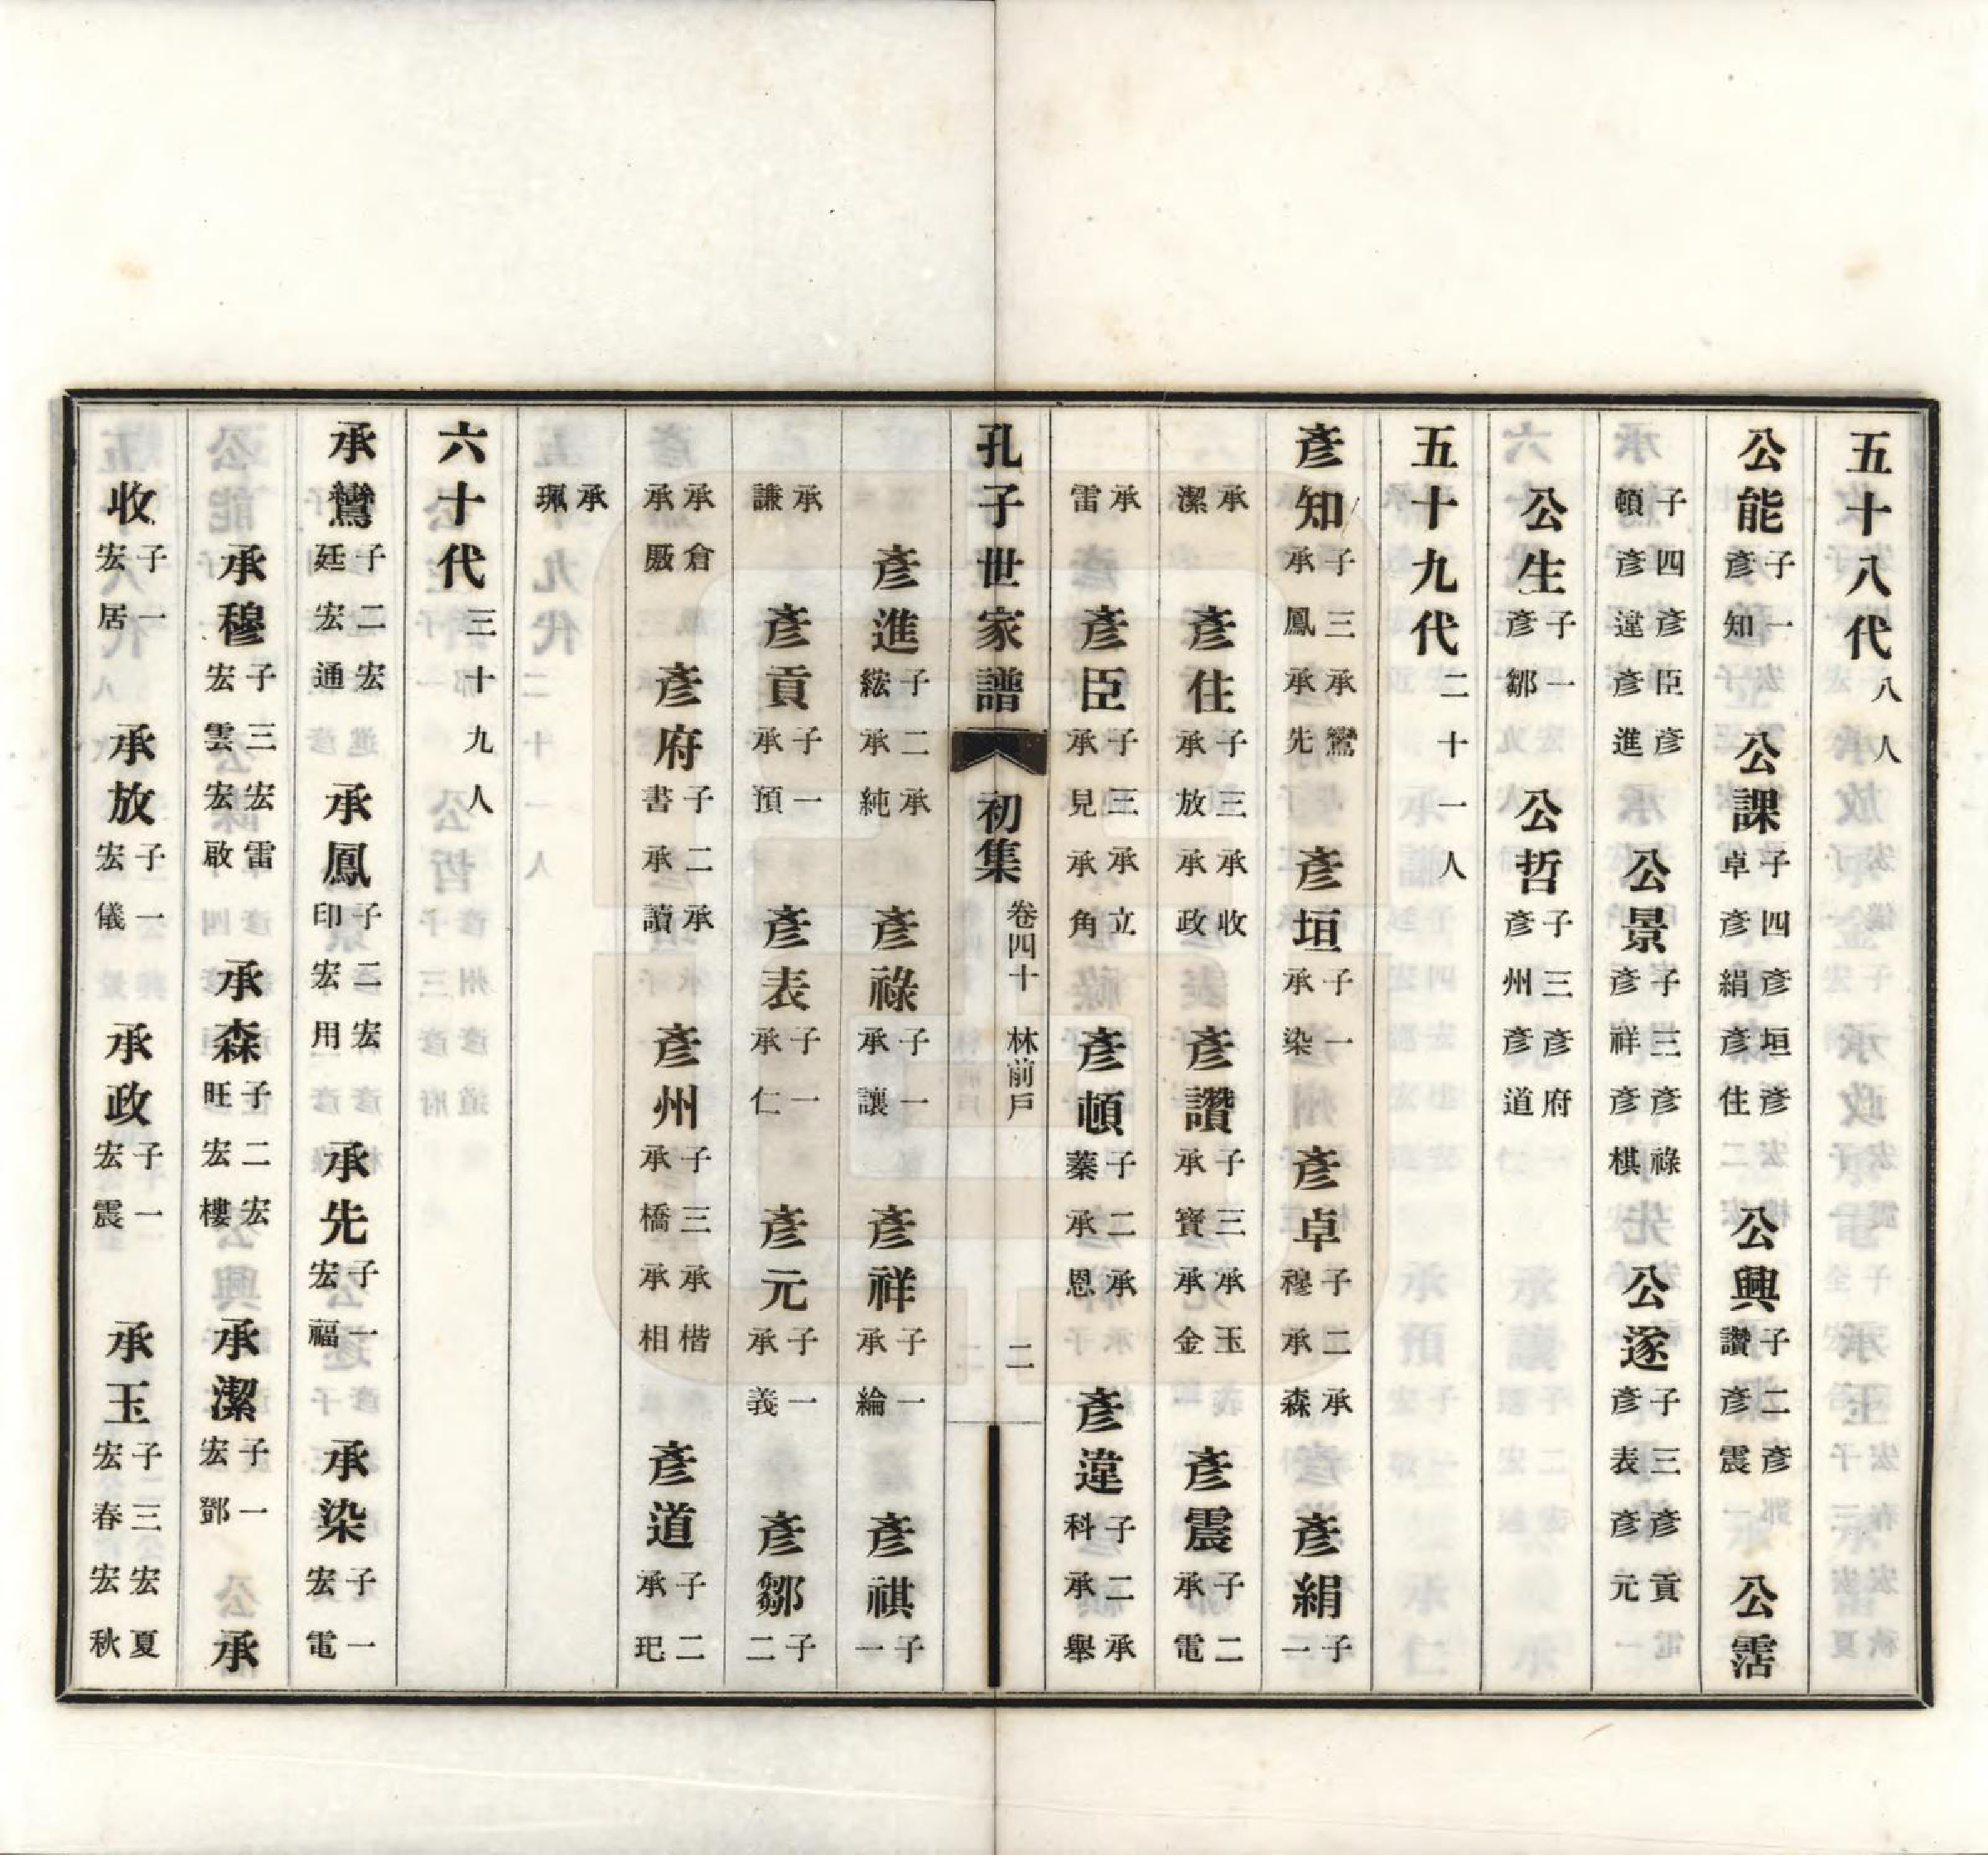 五十八代 八人
公能 子一彥知 公課 子四彥垣彥卓彥絹彥住 公興 子二彥震彥讚 公霑
子四彥臣彥頓彥違彥進 公景 子三彥祿彥祥彥棋 公遂 子三彥貢彥表彥元
公生 子一彥鄒 公哲 子三彥府彥州彥道
五十九代 二十一人
彥知 子三承鸞承鳳承先 彥垣 子一承染 彥卓 子二承穆承森 彥絹 子一
承潔 彥住 子三承收承放承政 彥讚 子三承玉承寶承金 彥震 子二承電
承雷 彥臣 子三承立承見承角 彥頓 子二承蓁承恩 彥違 子二承科承舉
彥進 子二承紘承純 彥祿 子一承讓 彥祥 子一承綸 彥祺 子一
承謙 彥貢 子一承預 彥表 子一承仁 彥元 子一承義 彥鄒 子二
承倉承廒 彥府 子二承書承讀 彥州 子三承楷承橋承相 彥道 子二承玘
承珮
六十代 三十九人
承鸞 子二宏廷宏通 承鳳 子二宏印宏用 承先 子一宏福 承染 子一宏電
承穆 子三宏雷宏雲宏啟 承森 子二宏旺宏樓 承潔 子一宏鄧 承
收 子一宏居 承放 子一宏儀 承政 子一宏震 承玉 子三宏夏宏春宏秋
孔子世家譜 初集 卷四十 林前戶 二